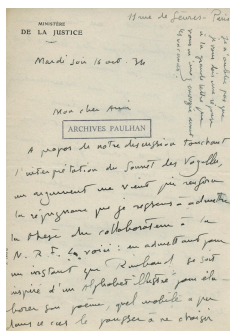 11 rue de Sèvres - Paris
MINISTÈRE
DE LA JUSTICE
Mardi soir 16 oct. 34
Mon cher Ami
ARCHIVES PAULHAN
A propos de notre discussion touchant
l'interprétation du Sonnet des Voyelles
un argument me vient qui renforce
la répugnance que je à admettre
la thèse du collaborateur de la
N. R. F. La voici : en admettant pour
un instant que Rimbaud se soit
inspiré d'un Alphabet illustré pour éla-
borer son poème, quel mobile a pu
dans ce cas le pousser à ne choisir